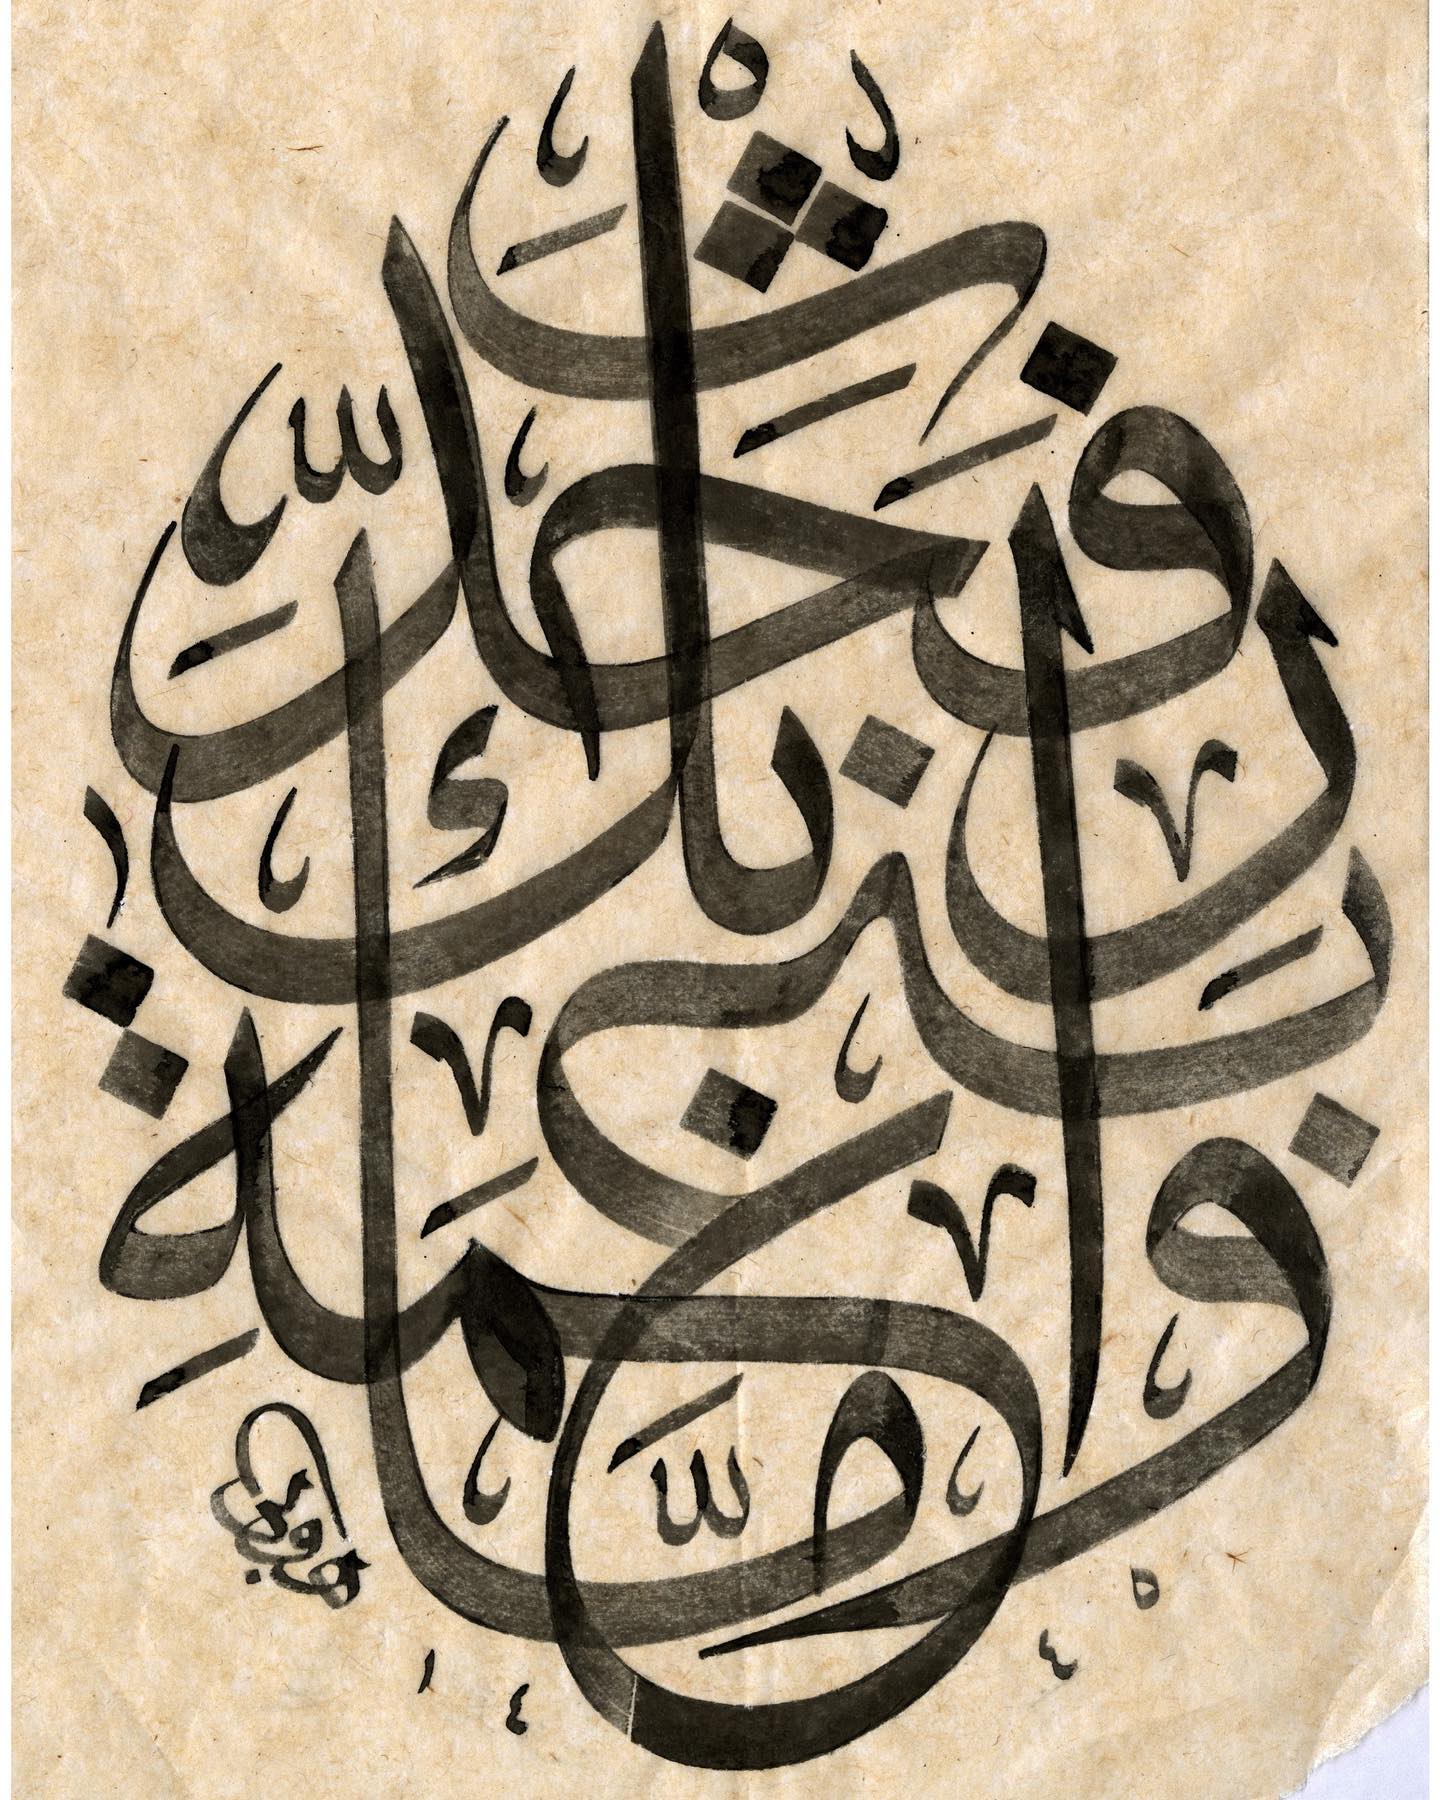 وَأَمَّا بِنِعْمَةِ رَبِّكَ فَحَدِّثْ
١٤٤٥